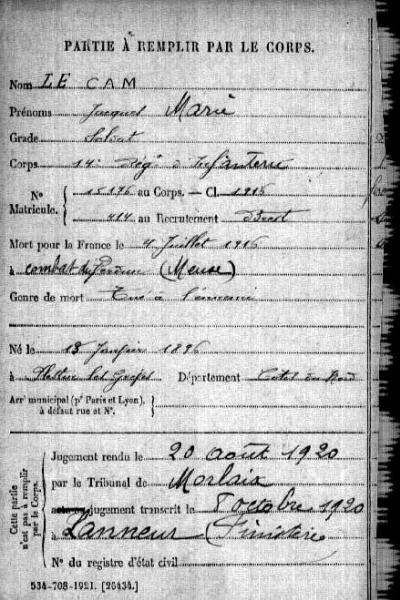 PARTIE À REMPLIR PAR LE CORPS.
Nom LE CAM
Prénoms Jacques Marie
Grade Soldat
Corps 14e Régt d'Infanterie
No Matricule. { 15176 au Corps. — Cl. 1916
414 au Recrutement Brest
Mort pour la France le 4 Juillet 1916
à combat de (Meuse)
Genre de mort Tué à l'ennemi
Né le 13 Janvier 1896
à Département Côtes du Nord
Arrt municipal (pr Paris et Lyon), à défaut rue et No. }
Cette partie n'est pas à remplir par le Corps.
Jugement rendu le 20 août 1920
par le Tribunal de Morlaix
jugement transcrit le 8 octobre 1920
à Lanneur (Finistère
No du registre d'état civil
534-708-1921. [26434.]